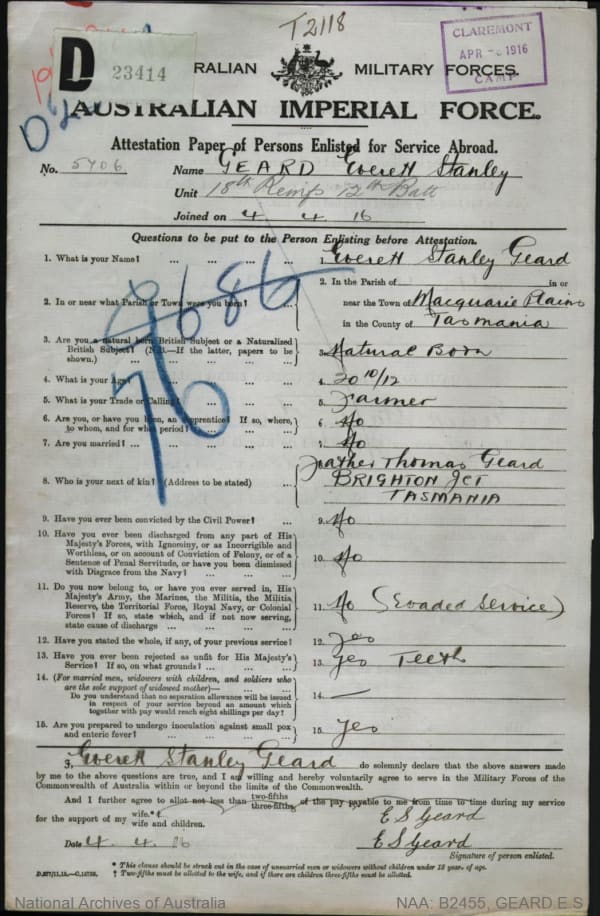 T2118
CLAREMONT
APR - 1916
CAMP
D
23414
RALIAN MILITARY FORCES.
AUSTRALIAN IMPERIAL FORCE.
Attestation Paper of Persons Enlisted for Service Abroad.
No. 5706 Name GEARD Everett Stanley
Unit 18th Reinfs 12th Batt
Joined on 4 4 16
Questions to be put to the Person Enlisting before Attestation.
1. What is your Name? ... ... ... 1. Everett Stanley Geard
2. In or near what Parish or Town were you born? ... 2. In the Parish of in or
near the Town of Macquarie Plains
in the County of Tasmania
3. Are you a natural born British Subject or a Naturalized
British Subject? (N.B.—If the latter, papers to be
shown.) 3. Natural Born
4. What is your Age? 4. 20 10/12
5. What is your Trade or Calling? 5. Farmer
6. Are you, or have you been, an Apprentice? If so, where,
to whom, and for what period? 6. No
7. Are you married? ... 7. No
8. Who is your next of kin? (Address to be stated) ... 8. Father Thomas Geard
BRIGHTON JCT
TASMANIA
9. Have you ever been convicted by the Civil Power? ... 9. No
10. Have you ever been discharged from any part of His
Majesty's Forces, with Ignominy, or as Incorrigible and
Worthless, or on account of Conviction of Felony, or of a
Sentence of Penal Servitude, or have you been dismissed
with Disgrace from the Navy? ... 10. No
11. Do you now belong to, or have you ever served in, His
Majesty's Army, the Marines, the Militia, the Militia
Reserve, the Territorial Force, Royal Navy, or Colonial
Forces? If so, state which, and if not now serving,
state cause of discharge ... 11. No (Evaded Service)
12. Have you stated the whole, if any, of your previous service? 12. Yes
13. Have you ever been rejected as unfit for His Majesty's
Service? If so, on what grounds? ... 13. Yes Teeth
14. (For married men, widowers with children, and soldiers who
are the sole support of widowed mother)—
Do you understand that no separation allowance will be issued
in respect of your service beyond an amount which
together with pay would reach eight shillings per day? 14. —
15. Are you prepared to undergo inoculation against small pox
and enteric fever? 15. Yes
9686
76
I, Everett Stanley Geard do solemnly declare that the above answers made
by me to the above questions are true, and I am willing and hereby voluntarily agree to serve in the Military Forces of the
Commonwealth of Australia within or beyond the limits of the Commonwealth.
And I further agree to allot not less than two-fifths three-fifths of the pay payable to me from time to time during my service
for the support of my wife.*†
wife and children.
E S Geard
Date 4. 4. 16 E S Geard
Signature of person enlisted.
* This clause should be struck out in the case of unmarried men or widowers without children under 18 years of age.
† Two-fifths must be allotted to the wife, and if there are children three-fifths must be allotted.
National Archives of Australia NAA: B2455, GEARD E S